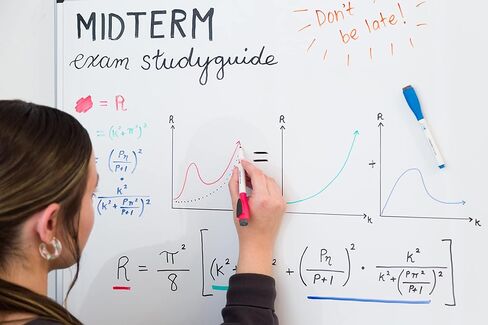 MIDTERM
exam studyguide
Don't
be late!
= R
= (K²+π²)²
(Pπ/P+1)²
•
K²/(K²+(Pπ²/P+1)²)
R
K
=
R
K
+
R
K
R = π²/8 [(K²+ + (Pπ/P+1)² · K²/(K²+(Pπ²/P+1)²)]